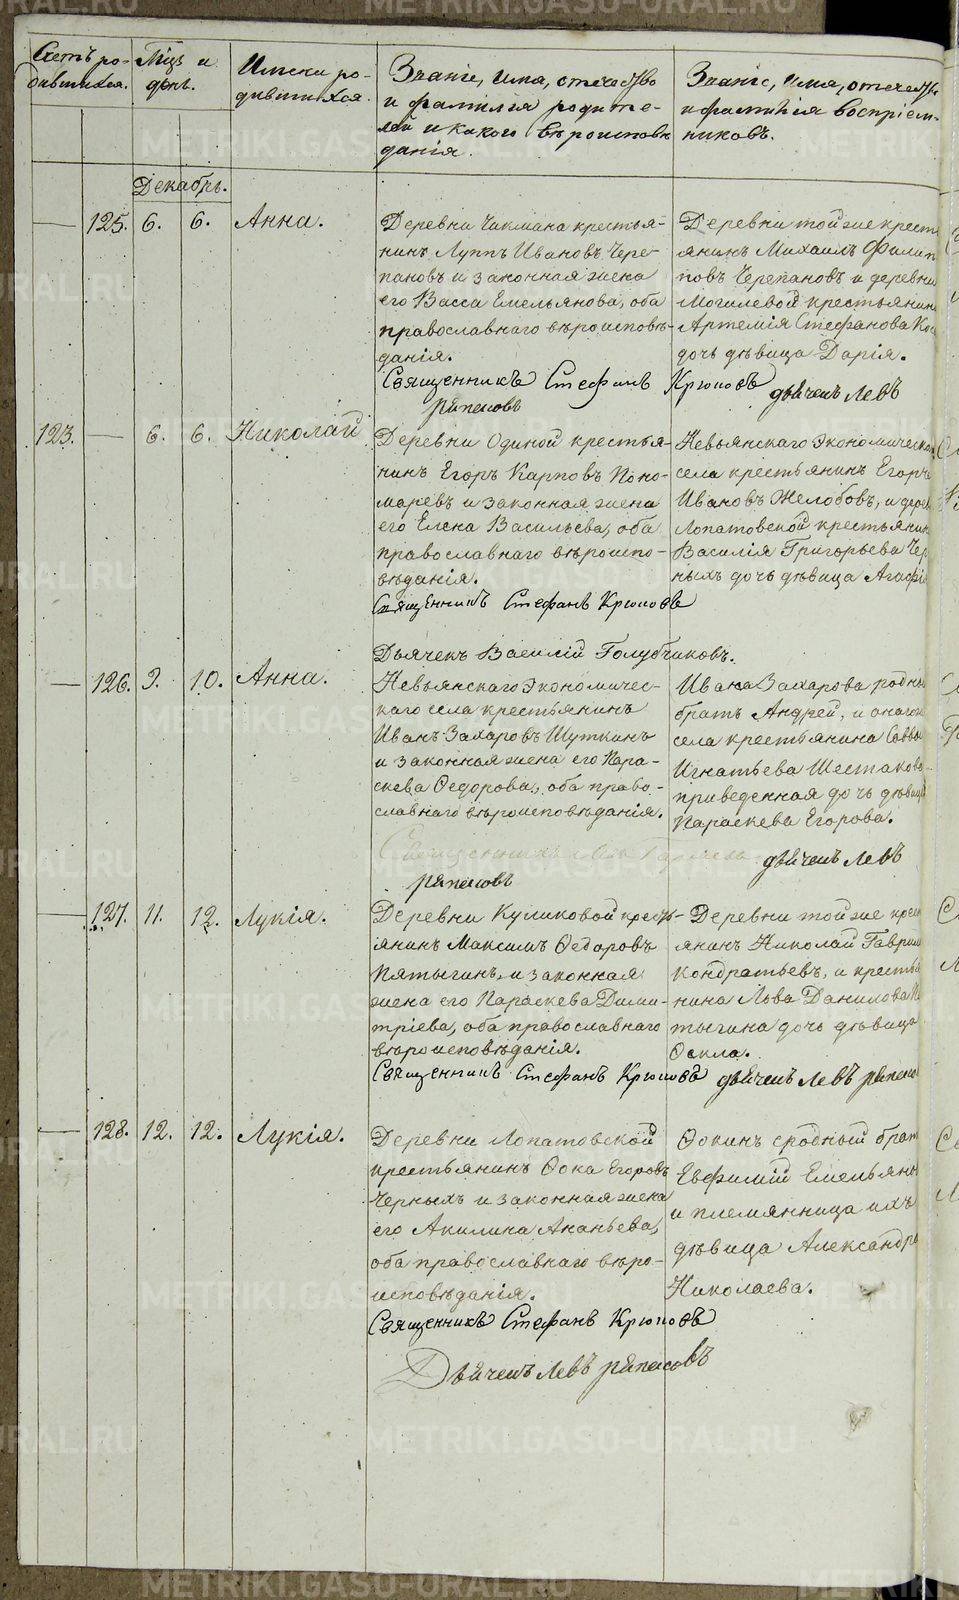 Счетъ ро-
дившихся.
Мѣцъ и
день.
Имена ро-
дившихся.
Званіе, имя, отечество
и фамилія родите-
лей и какого вѣроиспове
данія.
Званіе, имя, отечеств
и фамилія воспріем-
никовъ.
Декабрь.
125. 6. 6. Анна.
Деревни Чакмана крестья-
нинъ Луппъ Ивановъ Чере-
пановъ и законная жена
его Васса Емельянова, оба
православнаго вѣроисповѣ-
данія.
Деревни той же крест
янинъ Михаилъ Филип
повъ Черепановъ и деревни
Могилевой крестьянина
Артемія Стефанова Кос
дочь дѣвица Дарія.
Священникъ Стефанъ Крюковъ
дьячекъ Левъ
ряпасовъ
123. 6. 6. Николай
Деревни Одиной крестья-
нинъ Егоръ Карповъ Поно-
маревъ и законная жена
его Елена Васильева, оба
православнаго вѣроиспо-
вѣданія.
Невьянскаго экономическа
села крестьянинъ Егоръ
Ивановъ Желобовъ, и дерев
Лопатовской крестьянин
Василія Григорьева Чер
ныхъ дочь дѣвица Агафі
Священникъ Стефанъ Крюковъ
Дьячекъ Василій Голубчиковъ.
126. 9. 10. Анна.
Невьянскаго экономичес-
каго села крестьянинъ
Иванъ Захаровъ Шуткинъ
и законная жена его Пара-
скева Ѳедорова, оба право-
славнаго вѣроисповѣданія.
Ивана Захарова родны
братъ Андрей, и онаго ж
села крестьянина Савва
Игнатьева Шестакова
приведенная дочь дѣвица
Параскева Егорова.
Священникъ
дьячекъ Левъ
ряпасовъ
127. 11. 12. Лукія.
Деревни Куликовой крестъ-
янинъ Максимъ Ѳедоровъ
Пятыгинъ и законная
жена его Параскева Дими-
тріева, оба православнаго
вѣроисповѣданія.
Деревни той же крест
янинъ Николай Гаврил
Кондратьевъ, и крестья
нина Льва Данилова Пя
тыгина дочь дѣвица
Ѳекла.
Священникъ Стефанъ Крюковъ дьячекъ Левъ ряпасо
128. 12. 12. Лукія.
Деревни Лопатовской
крестьянинъ Ѳока Егоровъ
Черныхъ и законная жена
его Акилина Ананьева,
оба православнаго вѣро-
исповѣданія.
Ѳокинъ сродный брат
Евфимій Емельяны
и племянница ихъ
дѣвица Александра
Николаева.
Священникъ Стефанъ Крюковъ
Дьячекъ Левъ ряпасовъ
METRIKI.GASO-URAL.RU